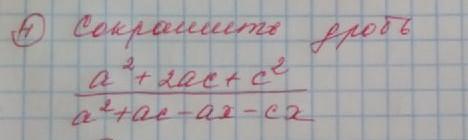 ④ Сократить дробь
a² + 2ac + c²
a² + ac - ax - cx